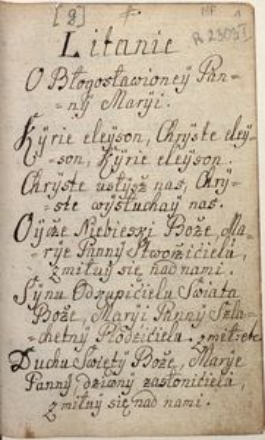 [8]
MF 1
R 2303 I
Litanie
O Błogosławioney Pan=
=ny Maryi.
Kÿrie eleÿson, Chrÿste eleÿ=
=son, Kÿrie eleÿson.
Chrÿste usłÿsz nas, Chrÿ=
=ste wÿsłuchaÿ nas.
Oÿcze Niebieski Boże, Ma=
rÿe Pannÿ Stworzicielu,
zmiłuÿ się nad nami.
Sÿnu Odkupicielu Swiata
Boże, Maryi Pannÿ Szla=
=chetnÿ Rodzicielu. zmił: etc
Duchu Swiętÿ Boże, Marÿe
Pannÿ dziwnÿ zasłonicielu,
zmiłuÿ się nad nami.